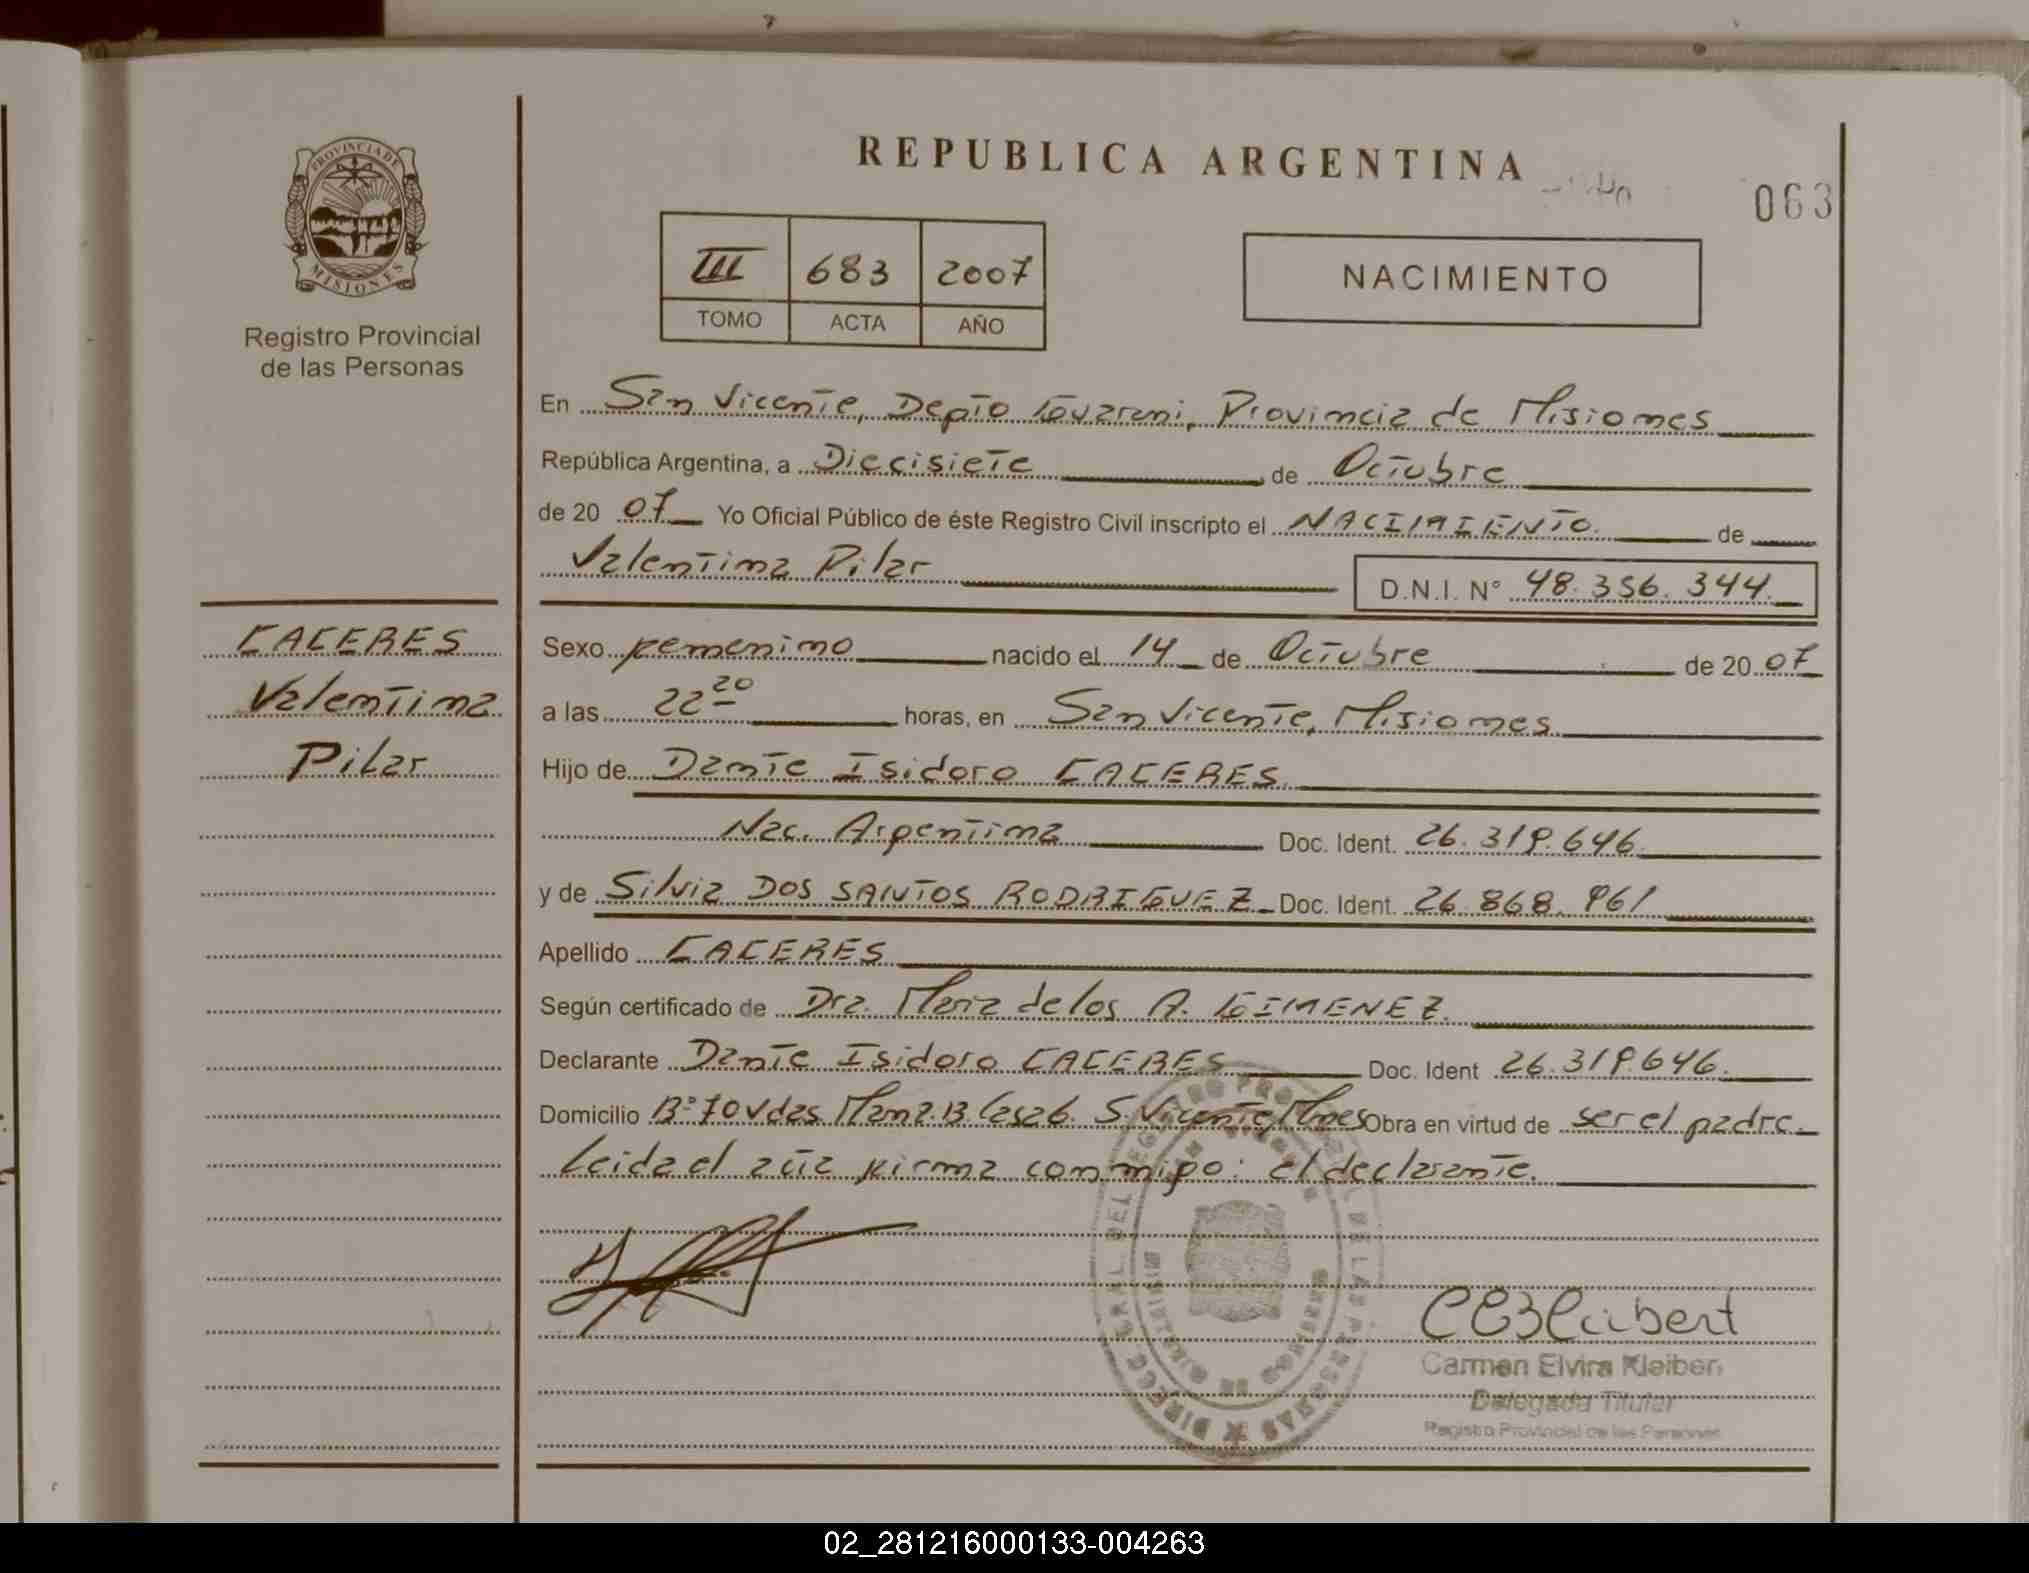 REPUBLICA ARGENTINA
063
PROVINCIA DE
MISIONES
Registro Provincial
de las Personas
III 683 2007
TOMO ACTA AÑO
NACIMIENTO
En San Vicente, Depto Guarani, Provincia de Misiones
República Argentina, a Diecisiete de Octubre
de 20 07 Yo Oficial Público de éste Registro Civil inscripto el NACIMIENTO de
Valentina Pilar D.N.I. N° 48.356.344
CACERES
Valentina
Pilar
Sexo Femenino nacido el 14 de Octubre de 20 07
a las 22 20 horas, en San Vicente, Misiones
Hijo de Dante Isidoro CACERES
Nac. Argentina Doc. Ident. 26.319.646
y de Silvia DOS SANTOS RODRIGUEZ Doc. Ident. 26.868.961
Apellido CACERES
Según certificado de Dra. Maria de los A. GIMENEZ
Declarante Dante Isidoro CACERES Doc. Ident 26.319.646
Domicilio B° 70 Vdas Manz. B. Casa 6. S. Vicente, Mnes Obra en virtud de ser el padre.
Leida el acta firma conmigo: el declarante.
Carmen Elvira Kleiber
Delegada Titular
Registro Provincial de las Personas
02_281216000133-004263